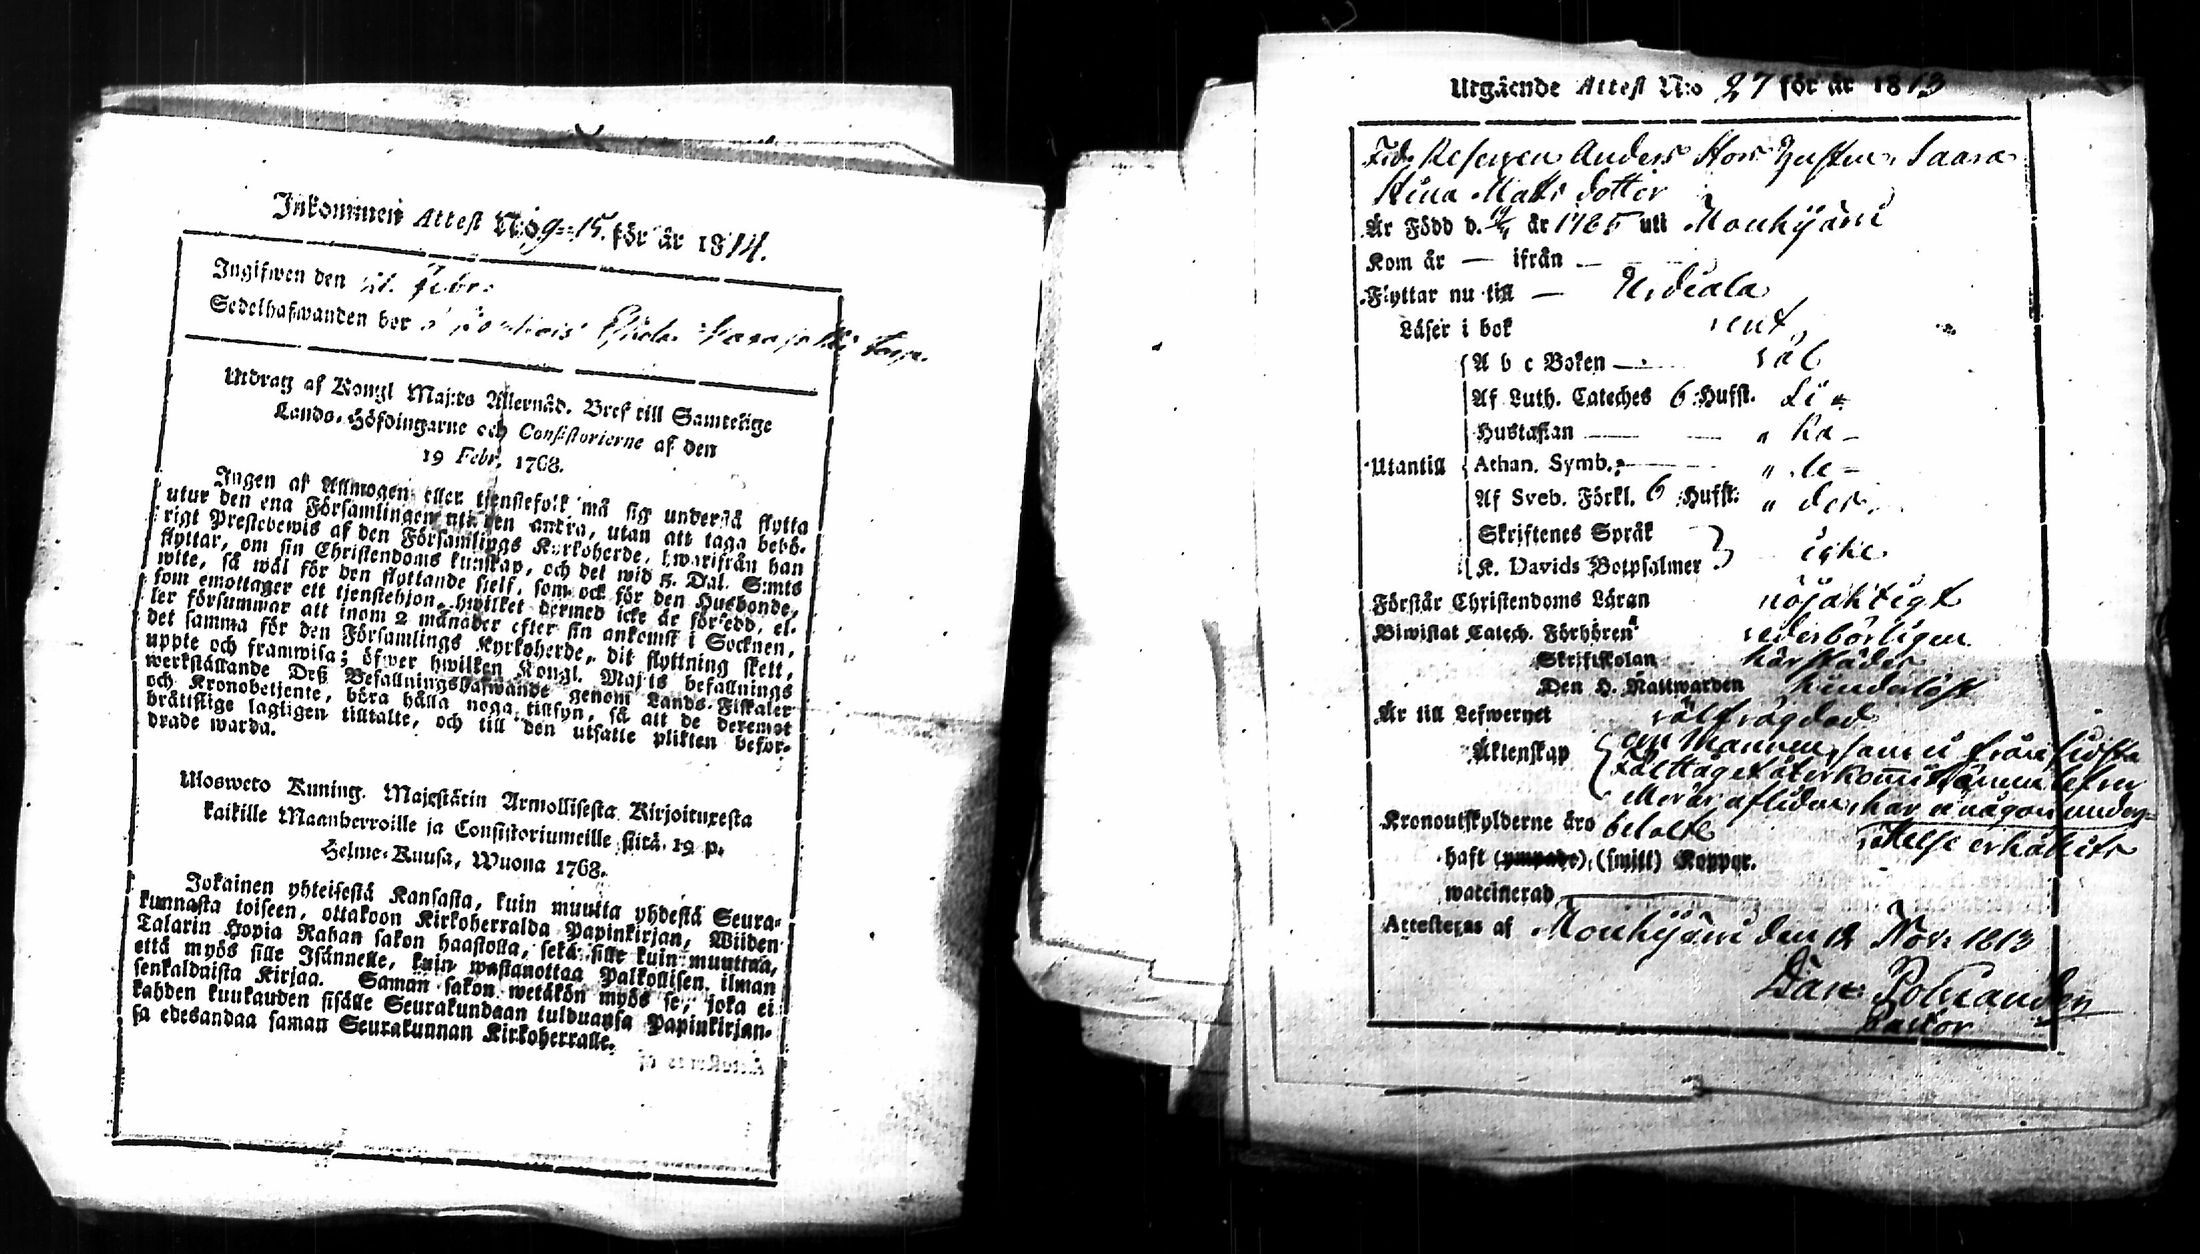 Inkommen Attest N:o 9=15. för år 1814.
Ingifwen den 21. Febr.
Sedelhafwanden bor
Utdrag af Kongl Maj:ts Allernåd. Bref till Samtelige
Lands-Höfdingarne och Consistorierne af den
19 Febr. 1768.
Ingen af Allmogen eller tjenstefolk må sig understå flytta
utur den ena Församlingen uti den andra, utan att taga behö-
rigt Prestebewis af den Församlings Kyrkoherde, hwarifrån han
flyttar, om sin Christendoms kunskap, och det wid 5. Dal. S:mts
wite, så wäl för den flyttande sjelf, som ock för den Husbonde,
som emottager ett tjenstehjon, hwilket dermed icke är försedd, el-
ler försummar att inom 2 månader efter sin ankomst i Socknen,
det samma för den Församlings Kyrkoherde, dit flyttning skett,
uppte och framwisa; öfwer hwilken Kongl. Maj:ts befallnings
werkställande Deß Befallningshafwande genom Lands-Fiskaler
och Kronobetjente, böra hålla noga tillsyn, så att de deremot
brättslige lagligen tilltalte, och till den utsatte plikten befor-
drade warda.
Ulosweto Kuning. Majestätin Armollisesta Kirjoituxesta
kaikille Maanherroille ja Consistoriumeille siitä 19 p.
Helme-Kuusa, Wuona 1768.
Jokainen yhteisestä Kansasta, kuin muutta yhdestä Seura-
kunnasta toiseen, ottakoon Kirkoherralda Papinkirjan, Wiiden
Talarin Hopia Rahan sakon haastolla, sekä sille kuin muuttaa,
että myös sille Isännelle, kuin wastanottaa Palkollisen ilman
senkaldaista Kirjaa. Saman sakon wetäkön myös se, joka ei
kahden kuukauden sisälle Seurakundaan tulduansa Papinkirjan-
sa edesandaa saman Seurakunnan Kirkoherralle.
Utgående Attest N:o 27 för år 1813
Anders Saara
Stina Matts dotter
Är Född d. år 1765 uti Mouhijärvi
Kom år — ifrån —
Flyttar nu till — Urdiala
Läser i bok rent
A b c Boken — väl
Af Luth. Cateches 6 Hufst. Li-
Hustaflan — — „ ka -
Utantill Athan. Symb. — „ le -
Af Sveb. Förkl. 6 Hufst. „ des.
Skriftenes Språk
K. Davids Botpsalmer icke
Förstår Christendoms Läran nöjaktigt
Biwistat Catech. Förhören wederbörligen
Skriftskolan härstädes
Den H. Nattwarden hinderlöst
Är till Lefwernet välfrägdad
Äktenskap om Mannen, som ej från sidsta
fälttåget återkommit, ännu lefver
eller är afliden, har ej någon under-
Kronoutskylderne äro betalte rättelse erhållits
haft (ympade), (smitt) Koppor.
waccinerad
Attesteras af Mouhijärvi den Nov. 1813
Polviander
Pastor